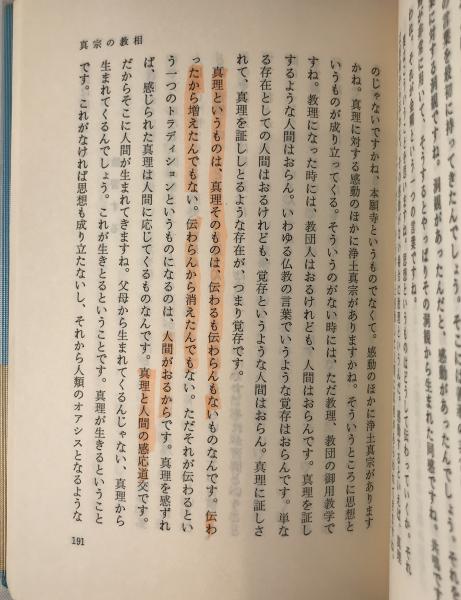 真宗の教相
のじゃないですかね、本願寺というものでなくて。感動のほかに浄土真宗があります
かね。真理に対する感動のほかに浄土真宗がありますかね。そういうところに思想と
いうものが成り立ってくる。そういうのがない時には、ただ教理、教団の御用教学で
すね。教理になった時には、教団人はおるけれども、人間はおらんです。真理を証し
するような人間はおらん。いわゆる仏教の言葉でいうような覚存はおらんです。単な
る存在としての人間はおるけれども、覚存というような人間はおらん。真理に証しさ
れて、真理を証ししとるような存在が、つまり覚存です。
真理というものは、真理そのものは、伝わるも伝わらんもないものなんです。伝わ
ったから増えたんでもない。伝わらんから消えたんでもない。ただそれが伝わるとい
う一つのトラディションというものになるのは、人間がおるからです。真理を感ずれ
ば、感じられた真理は人間に応じてくるものなんです。真理と人間の感応道交です。
だからそこに人間が生まれてきますね。父母から生まれてくるんじゃない、真理から
生まれてくるんでしょう。これが生きとるということです。真理が生きるということ
です。これがなければ思想も成り立たないし、それから人類のオアシスとなるような
191